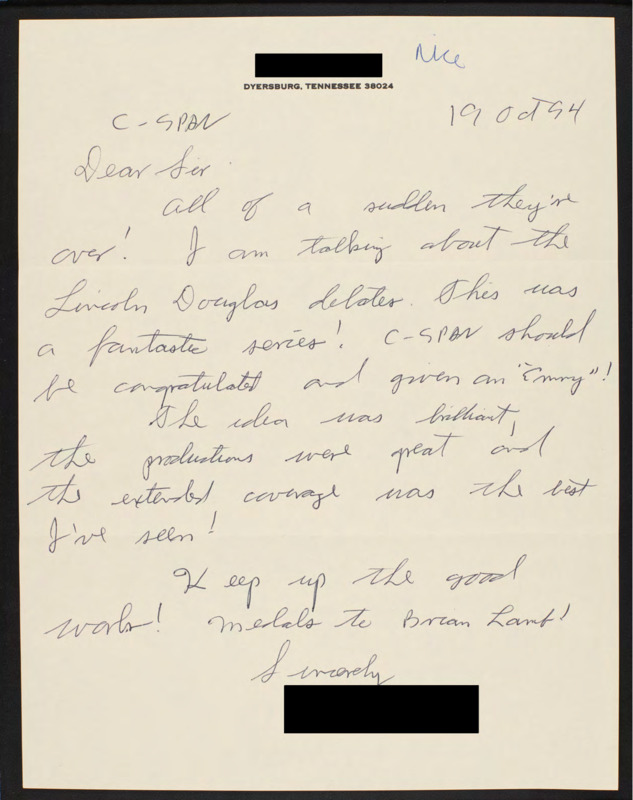 Nice
DYERSBURG, TENNESSEE 38024
19 Oct 94
C-SPAN
Dear Sir.
All of a sudden they're
over! I am talking about the
Lincoln Douglas debates. This was
a fantastic series! C-SPAN should
be congratulated and given an "Emmy"!
The idea was brilliant,
the productions were great and
the extended coverage was the best
I've seen!
Keep up the good
work! Medals to Brian Lamb!
Sincerely